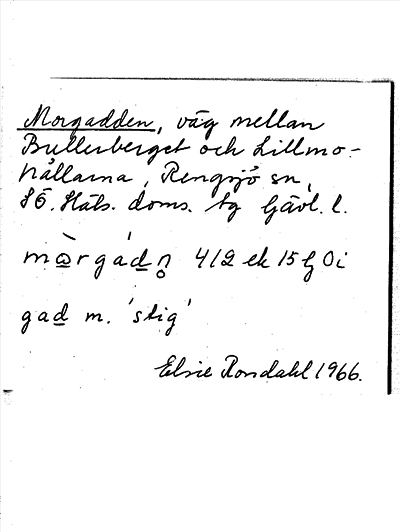 Morgadden, väg mellan
Bullerberget och Lillmo-
hållarna, Rengsjö sn,
SÖ. Häls. doms. tg Gävl. l.
mὼrgád̲n̥ 412 ek 15 G 0i
gad̲ m. 'stig'
Elsie Rondahl 1966.